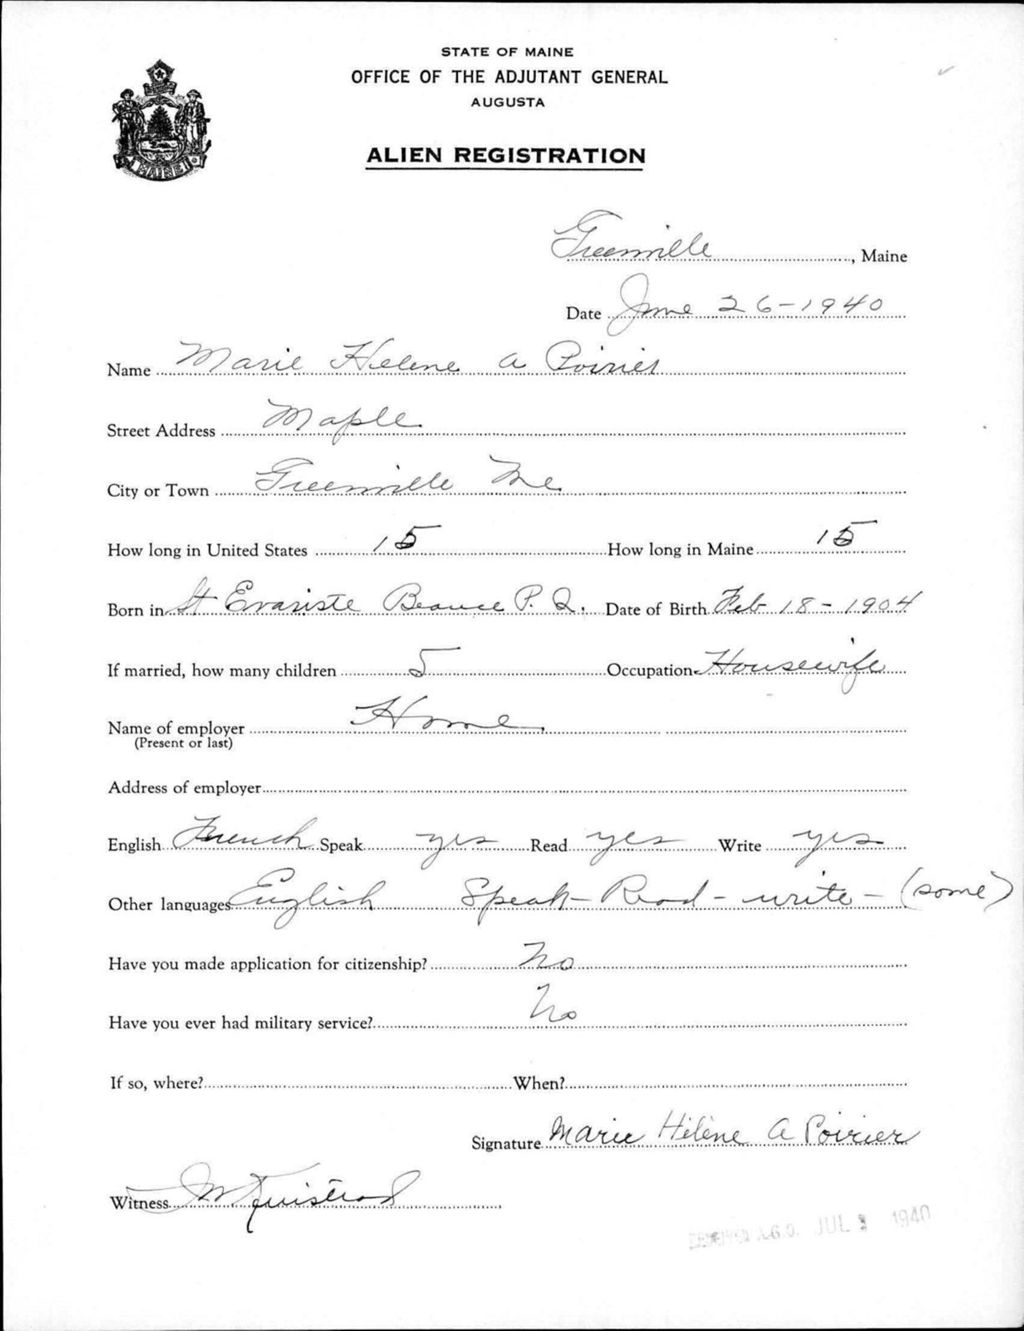 STATE OF MAINE
OFFICE OF THE ADJUTANT GENERAL
AUGUSTA
ALIEN REGISTRATION
MAINE
Greenville, Maine
Date June 26-1940
Name Marie Helene A Poirier
Street Address Maple
City or Town Greenville Me
How long in United States 15 How long in Maine 15
Born in St Evariste Beauce P. Q. Date of Birth Feb 18-1904
If married, how many children 5 Occupation Housewife
Name of employer Home
(Present or last)
Address of employer
English French Speak yes Read yes Write yes
Other languages English Speak-Read-write-(some)
Have you made application for citizenship? No
Have you ever had military service? No
If so, where? When?
Signature Marie Hélène A Poirier
Witness
RECEIVED A.G.O. JUL 1940